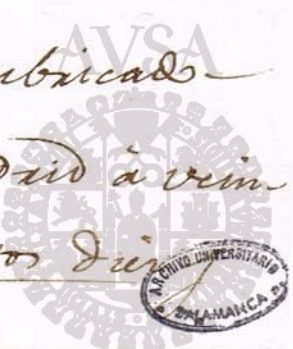 AVSA
ubricado
drid à vein
tos diez
ARCHIVO UNIVERSITARIO
SALAMANCA